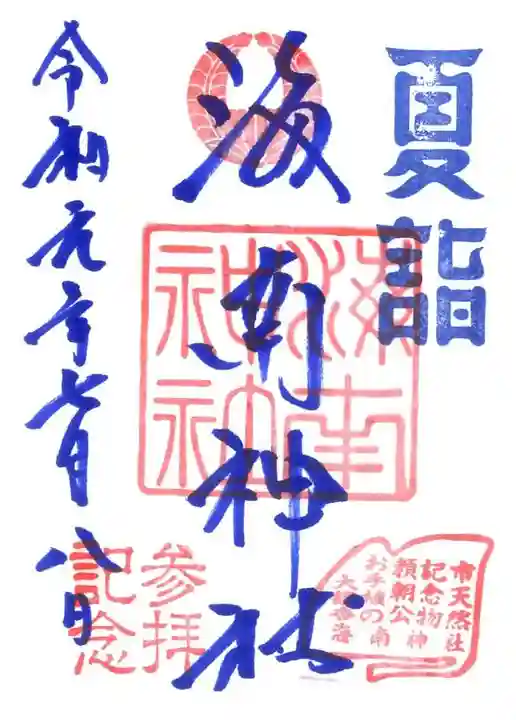 夏詣
海南神社
海南神社
令和元年七月八日
参拝
記念
市天然
記念物
頼朝公
お手植の
大銀杏
海南神社